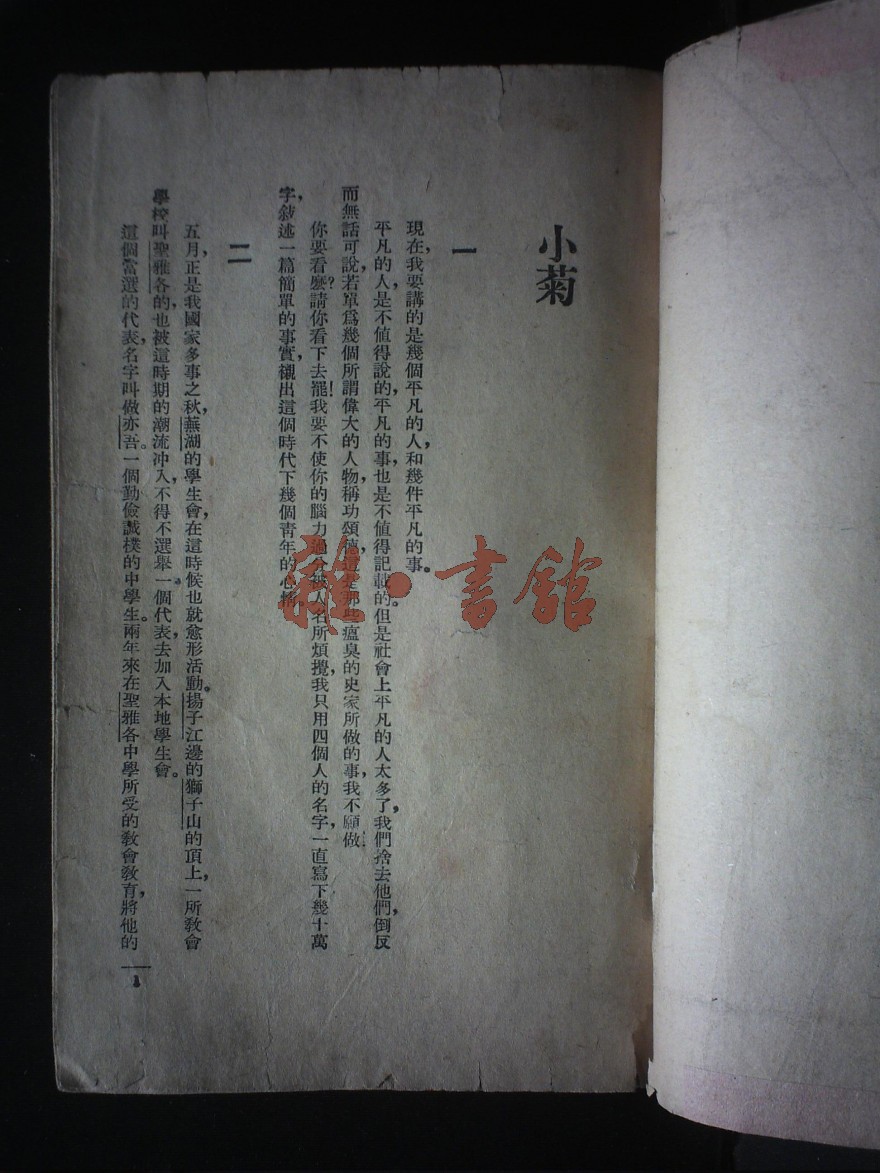 小菊
一
現在，我要講的是幾個平凡的人，和幾件平凡的事。
平凡的人，是不値得說的，平凡的事也是不値得記載的。但是社會上平凡的人太多了，我們捨去他們，倒反
而無話可說，若單爲幾個所謂偉大的人物，稱功頌德，這是那些瘟臭的史家所做的事，我不願做…
你要看麽？請你看下去罷！我要不使你的腦力過分被人名所煩攪，我只用四個人的名字，一直寫下幾十萬
字，敍述一篇簡單的事實，襯出這個時代下幾個靑年的心情。
二
五月，正是我國家多事之秋，蕪湖的學生會在這時候也就愈形活動。揚子江邊的獅子山的頂上，一所敎會
學校叫聖雅各的，也被這時期的潮流沖入，不得不選舉一個代表，去加入本地學生會。
這個當選的代表，名字叫做亦吾。一個勤儉誠樸的中學生。兩年來在聖雅各中學所受的敎會敎育，將他的
1
雜·書館